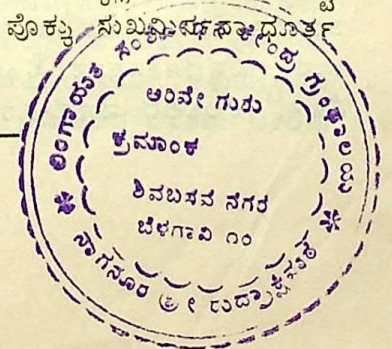 ಪೊಕ್ಕು ಸುಖಮಿರ್ಪನಾ ಧೂರ್ತ
ಲಿಂಗಾಯತ ಸಂಶೋಧನ ಕೇಂದ್ರ ಗ್ರಂಥಾಲಯ
ಅರಿವೇ ಗುರು
ಕ್ರಮಾಂಕ
ಶಿವಬಸವ ನಗರ
ಬೆಳಗಾವಿ ೧೦
ನಾಗನೂರ ಶ್ರೀ ರುದ್ರಾಕ್ಷಿಮಠ